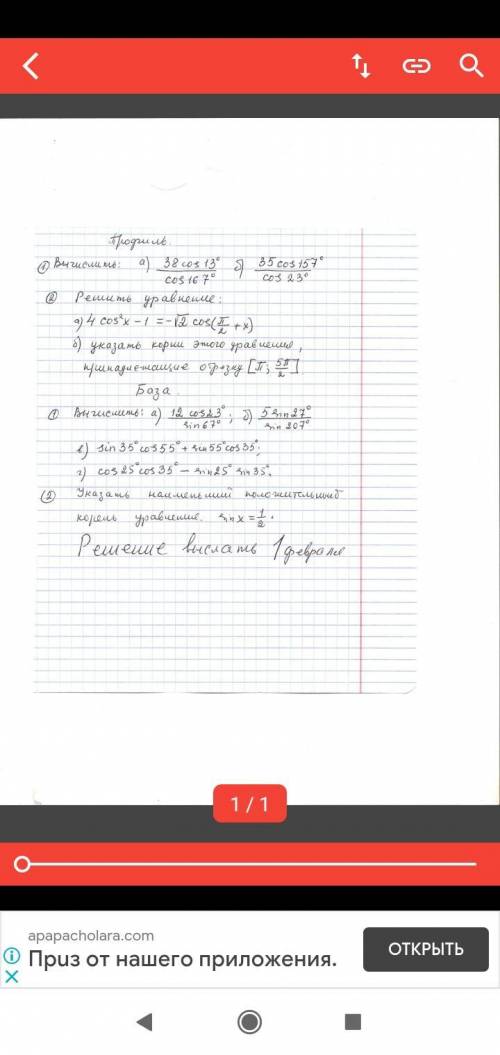 Профиль.
① Вычислить: а) 38 cos 13° / cos 167° б) 35 cos 157° / cos 23°
② Решить уравнение:
а) 4 cos²x - 1 = -√2 cos(π/2 + x)
б) указать корни этого уравнения,
принадлежащие отрезку [π; 5π/2]
База.
① Вычислить: а) 12 cos 23° / sin 67°; б) 5 sin 27° / sin 207°
в) sin 35° cos 55° + sin 55° cos 35°;
г) cos 25° cos 35° - sin 25° sin 35°.
② Указать наименьший положительный
корень уравнения. sin x = 1/2.
Решение выслать 1 февраля
1 / 1
apapacholara.com
Приз от нашего приложения.
ОТКРЫТЬ